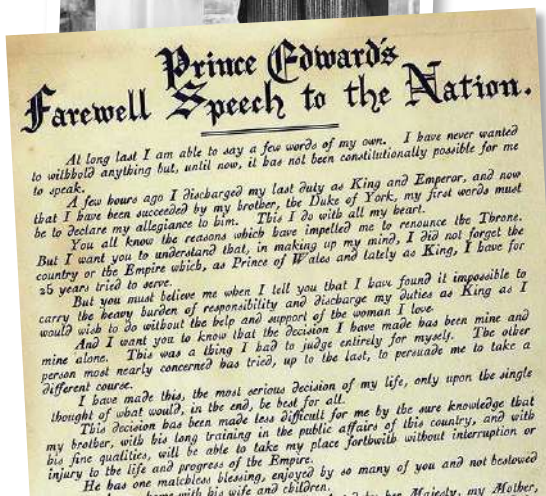 Prince Edward's
Farewell Speech to the Nation.
At long last I am able to say a few words of my own. I have never wanted
to withhold anything but, until now, it has not been constitutionally possible for me
to speak.
A few hours ago I discharged my last duty as King and Emperor, and now
that I have been succeeded by my brother, the Duke of York, my first words must
be to declare my allegiance to him. This I do with all my heart.
You all know the reasons which have impelled me to renounce the Throne.
But I want you to understand that, in making up my mind, I did not forget the
country or the Empire which, as Prince of Wales and lately as King, I have for
25 years tried to serve.
But you must believe me when I tell you that I have found it impossible to
carry the heavy burden of responsibility and discharge my duties as King as I
would wish to do without the help and support of the woman I love.
And I want you to know that the decision I have made has been mine and
mine alone. This was a thing I had to judge entirely for myself. The other
person most nearly concerned has tried, up to the last, to persuade me to take a
different course.
I have made this, the most serious decision of my life, only upon the single
thought of what would, in the end, be best for all.
This decision has been made less difficult for me by the sure knowledge that
my brother, with his long training in the public affairs of this country, and with
his fine qualities, will be able to take my place forthwith without interruption or
injury to the life and progress of the Empire.
He has one matchless blessing, enjoyed by so many of you and not bestowed
with his wife and children.
her Majesty, my Mother,